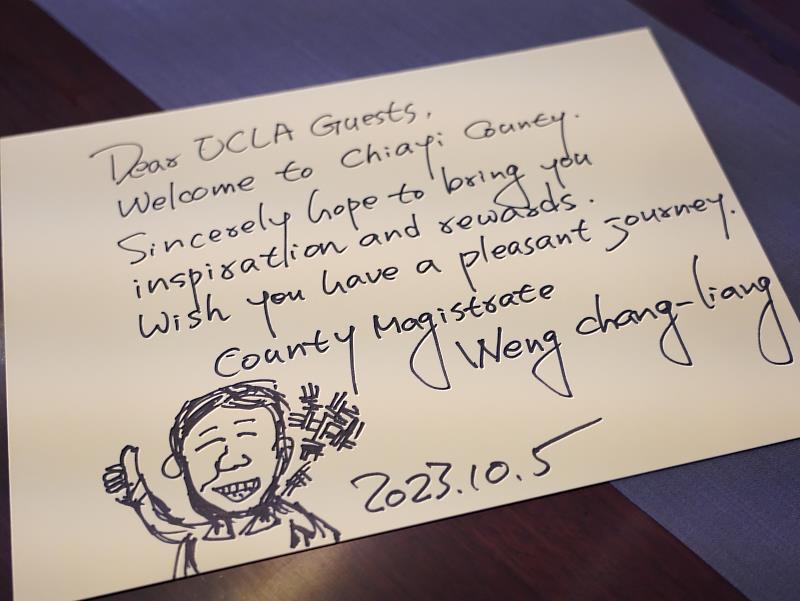 Dear UCLA Guests,
Welcome to Chiayi County.
Sincerely hope to bring you
inspiration and rewards.
Wish you have a pleasant journey.
County Magistrate
Weng chang-liang
2023.10.5